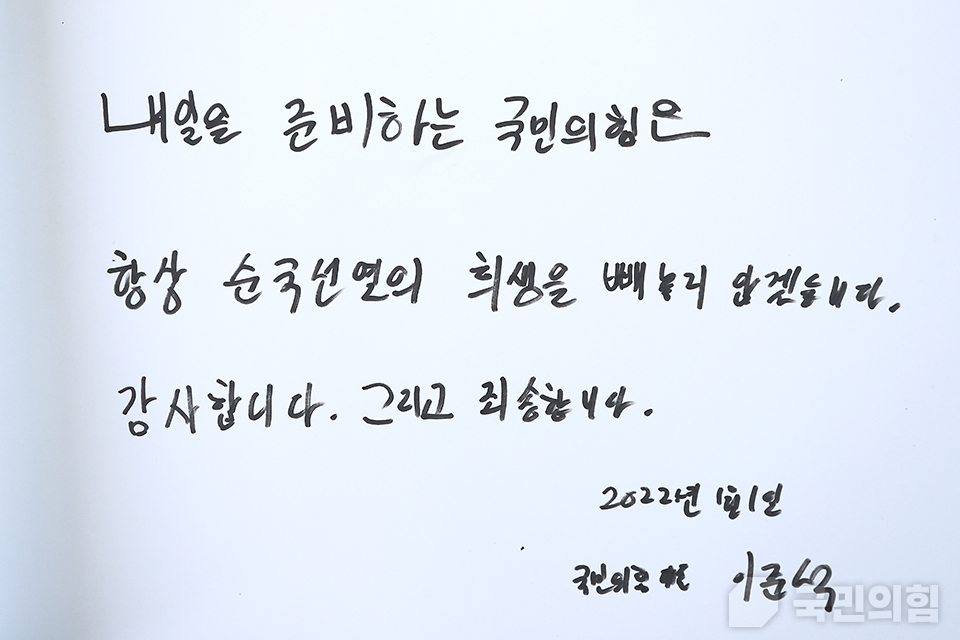 내일을 준비하는 국민의힘은
항상 순국선열의 희생을 빼놓지 않겠습니다.
감사합니다. 그리고 죄송합니다.
2022년 1월 1일
국민의힘 대표 이준석
국민의힘